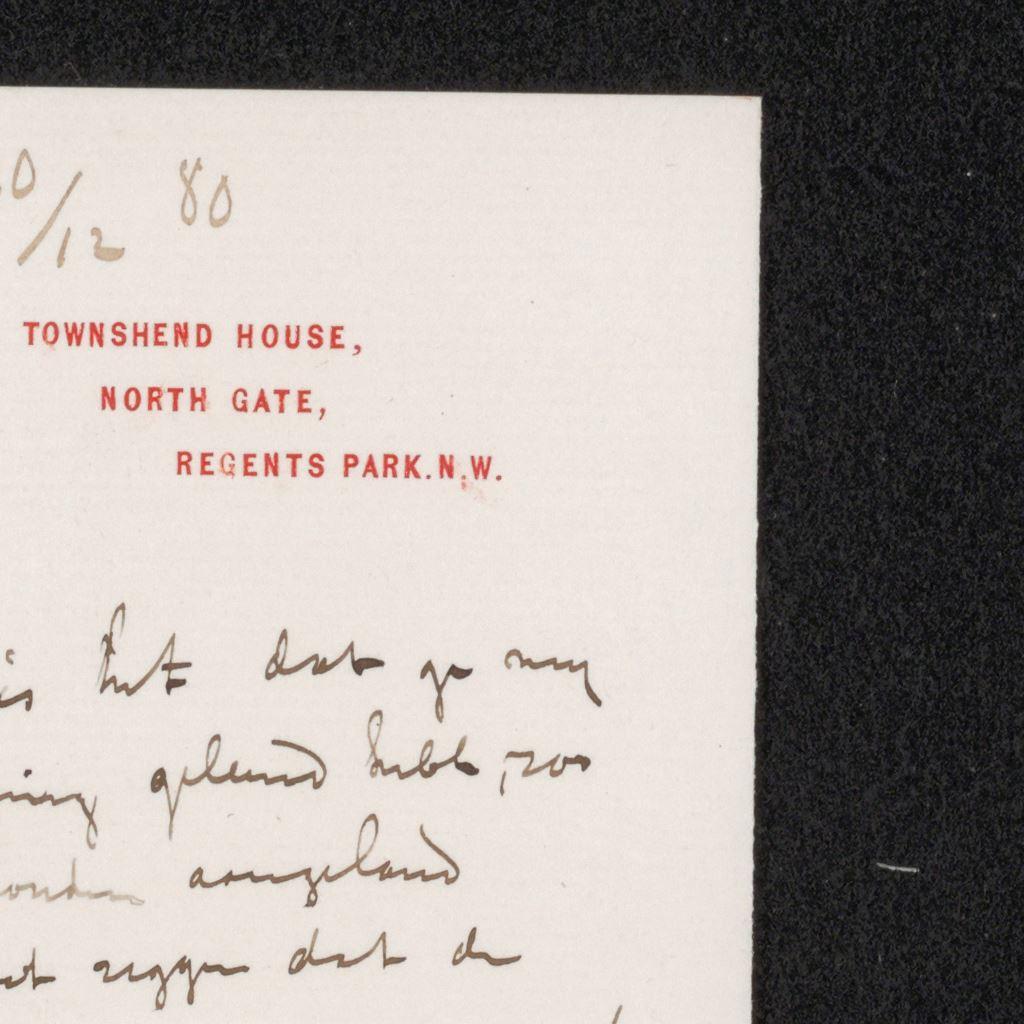 0/12 80
TOWNSHEND HOUSE,
NORTH GATE,
REGENTS PARK.N.W.
is het dat ge my
geleend hebt, zoo
aangeland
zeggen dat de